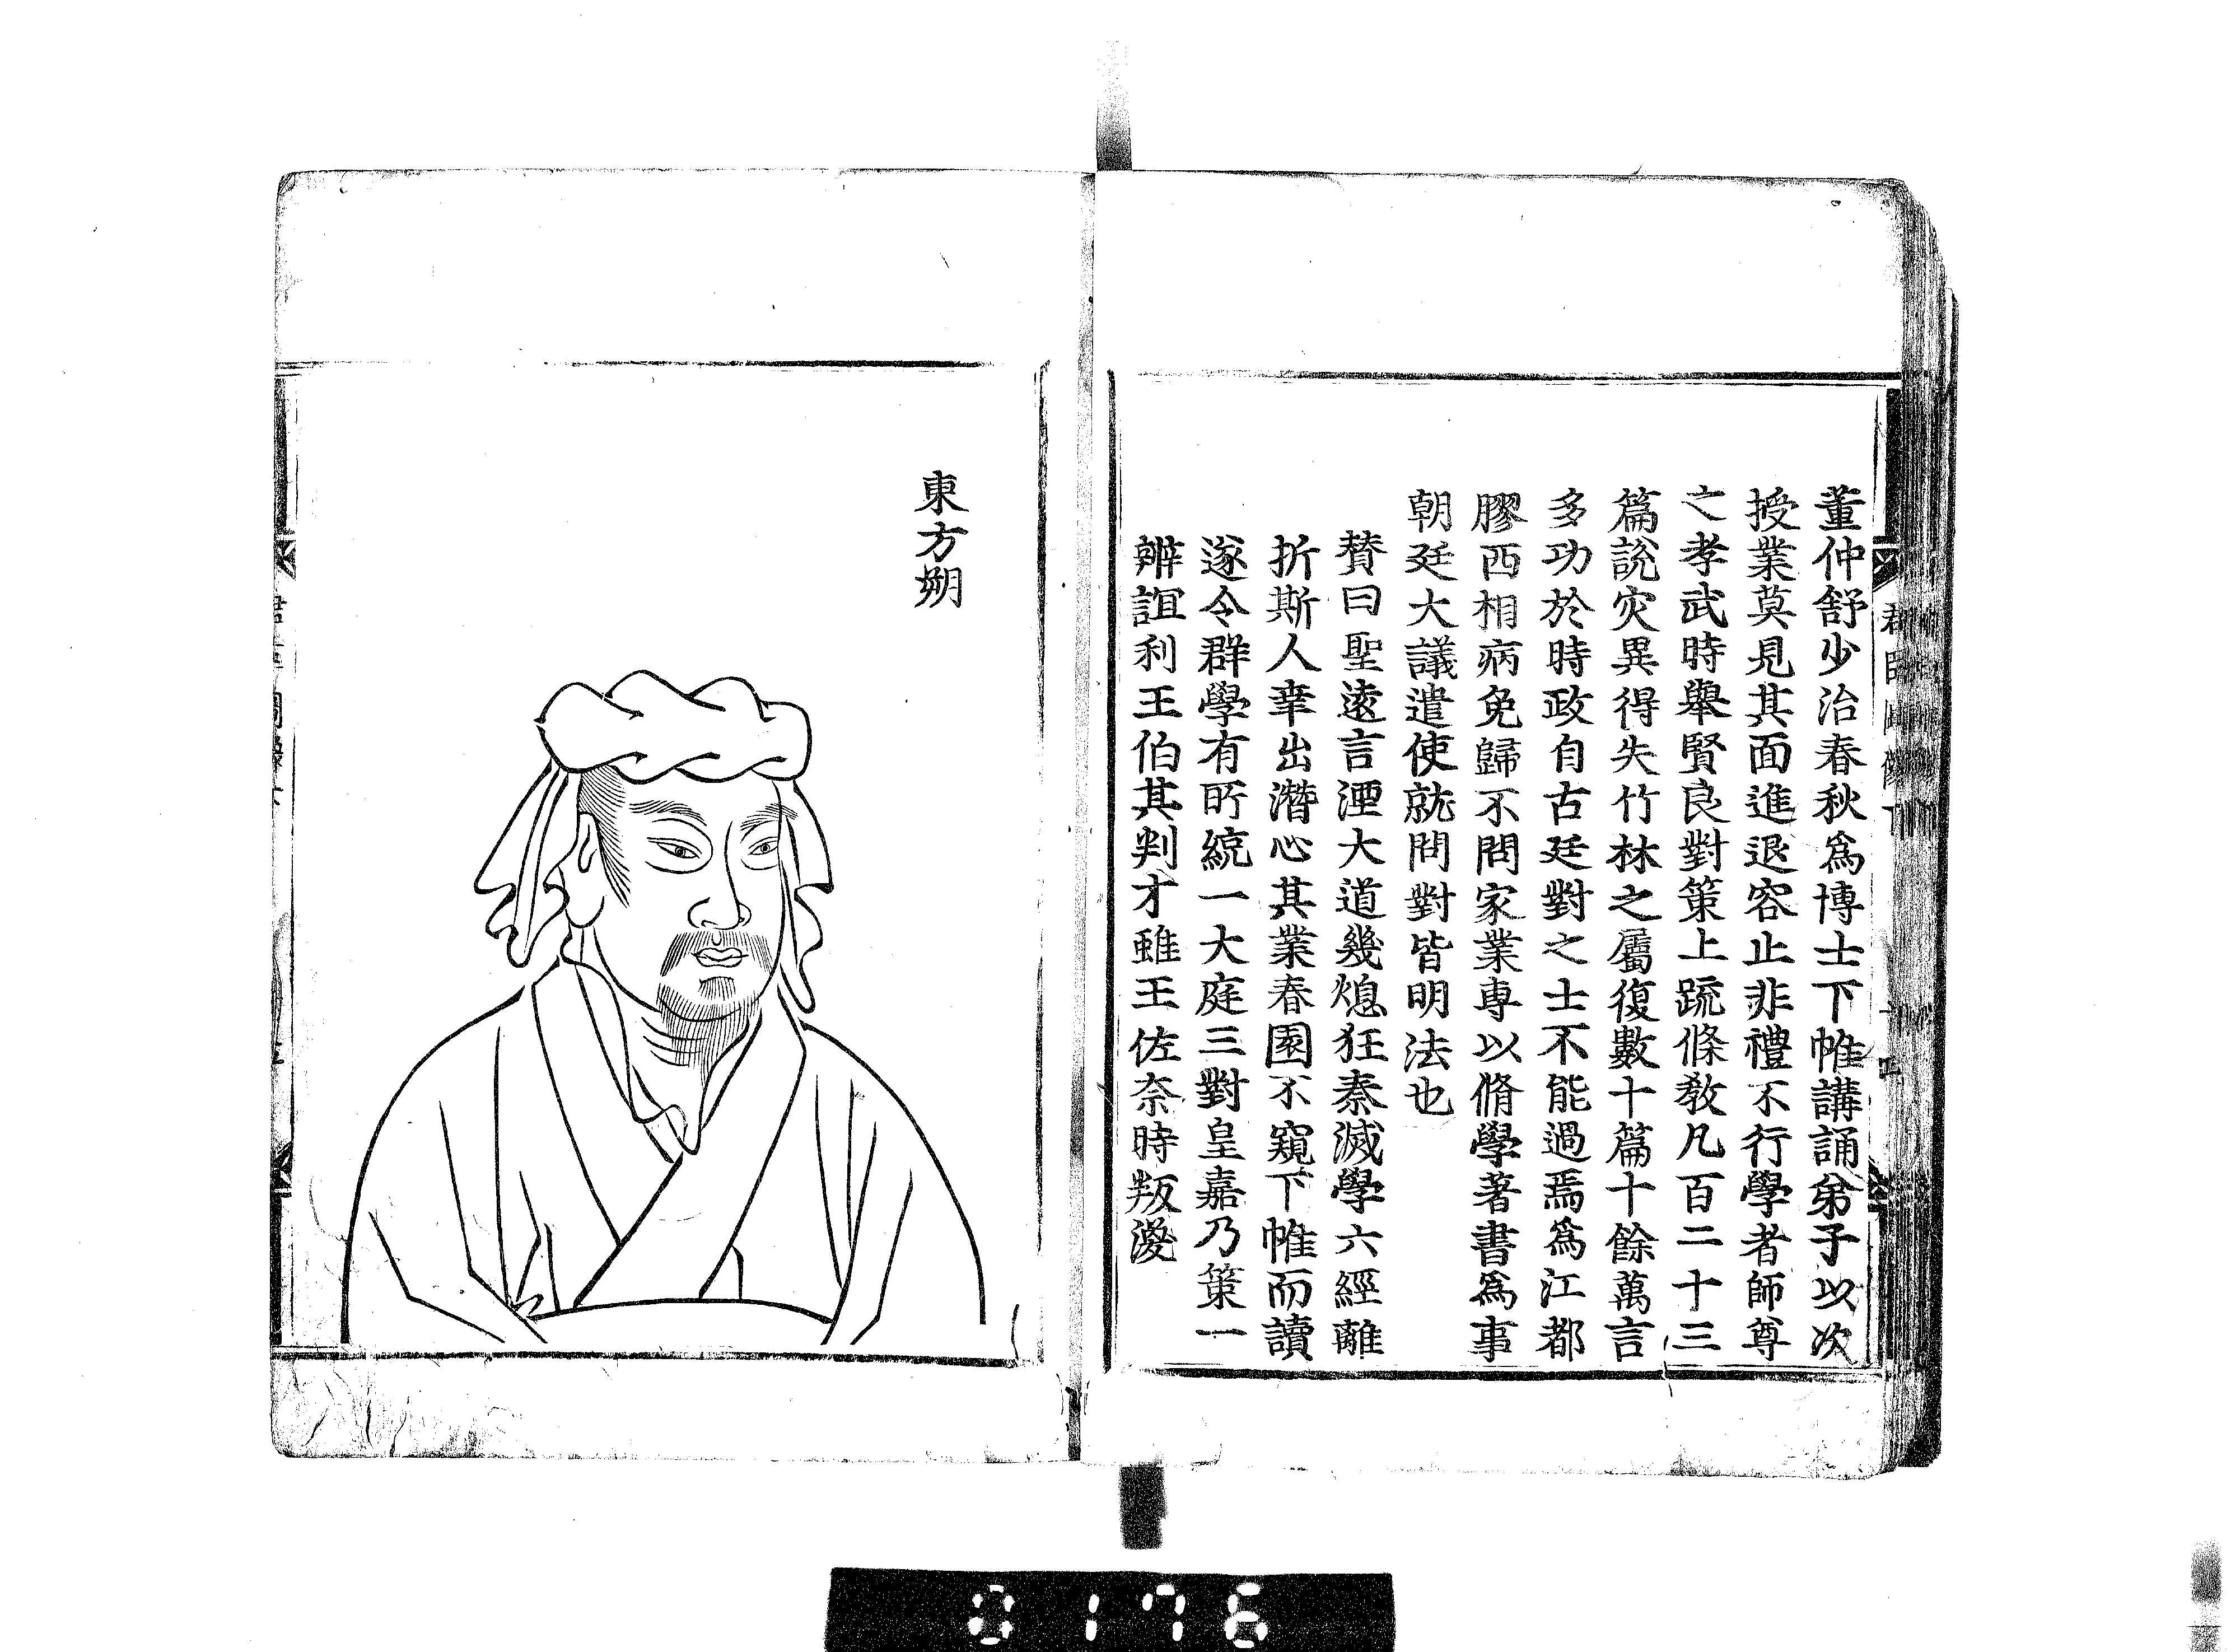 董仲舒少治春秋爲博士下帷講誦弟子以次
授業莫見其面進退容止非禮不行學者師尊
之孝武時舉賢良對策上䟽條教凡百二十三
篇說灾異得失竹林之屬復數十篇十餘萬言
多功於時政自古廷對之士不能過焉爲江都
膠西相病免歸不問家業専以脩學著書爲事
朝廷大議遣使就問對皆明法也
賛曰聖逺言湮大道幾熄狂秦滅學六經離
折斯人幸出潛心其業春園不窺下帷而讀
遂令群學有所統一大庭三對皇嘉乃策一
辨誼利王伯其判才雖王佐奈時叛渙
東方朔
0176